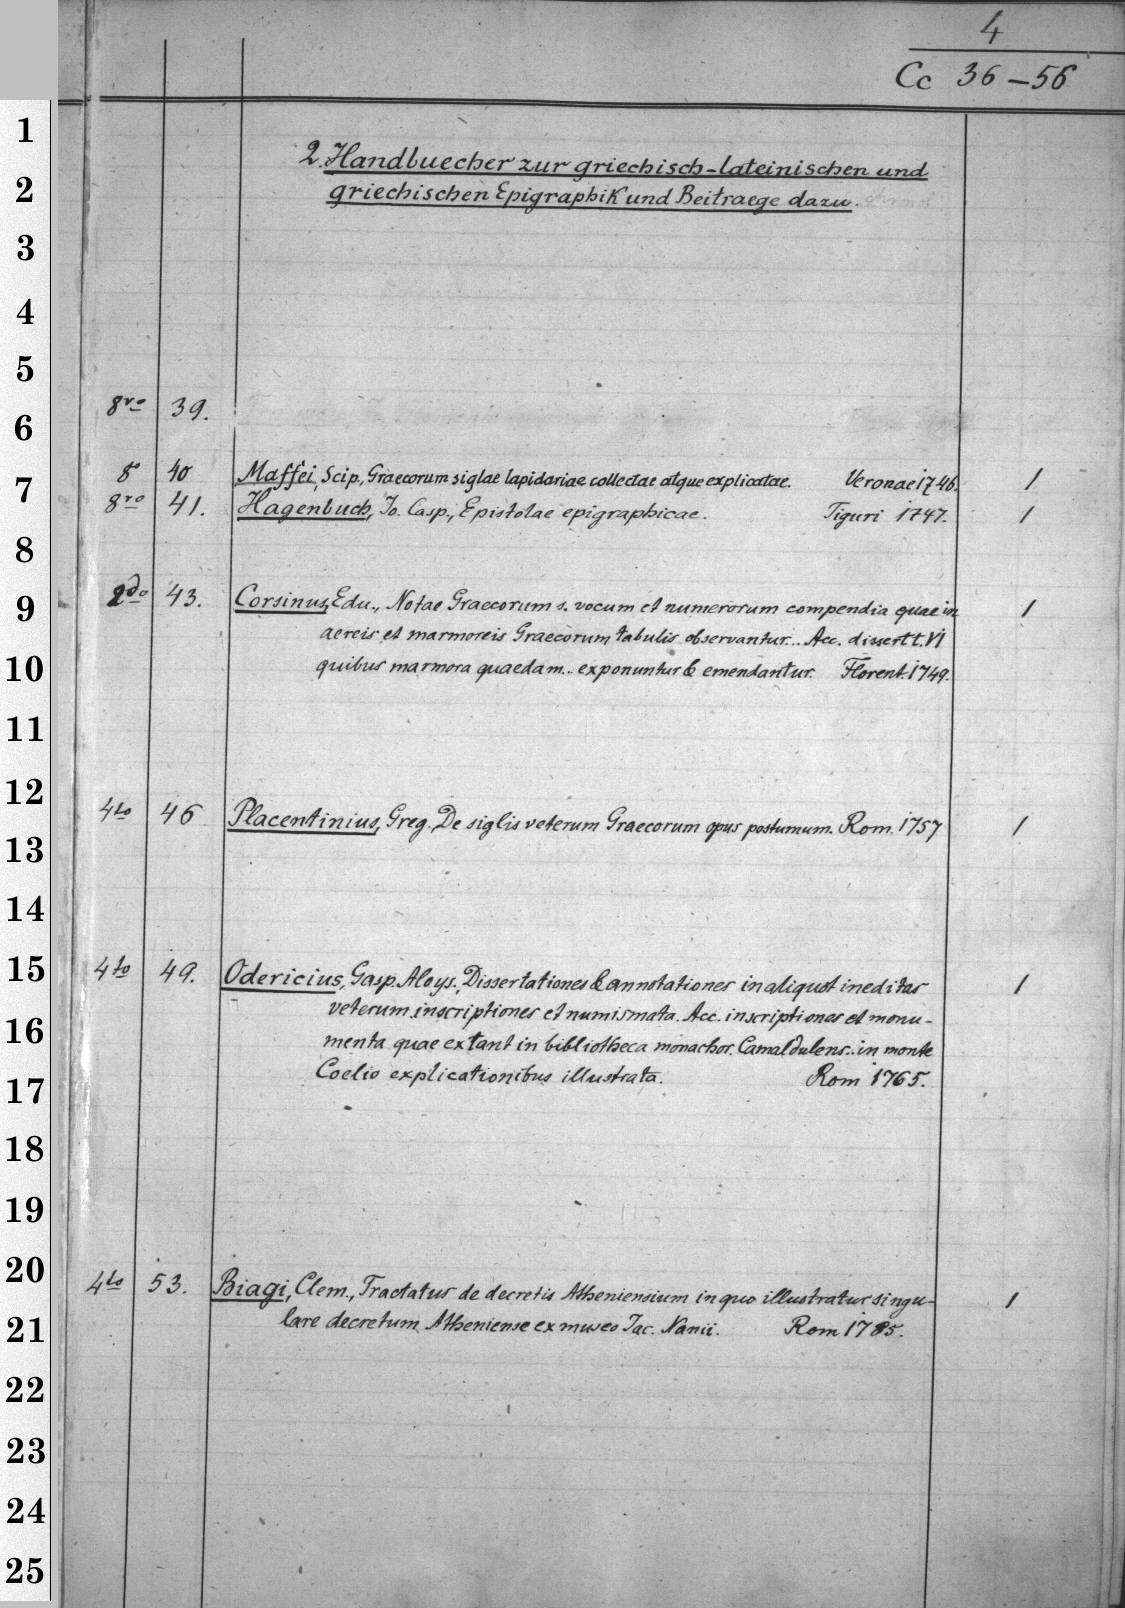 4
Cc 36-56
2. Handbuecher zur griechisch-lateinischen und
griechischen Epigraphik und Beitraege dazu.
8vo 39.
8° 40 Maffei, Scip., Graecorum siglae lapidariae collectae atque explicatae. Veronae 1746. 1
8vo 41. Hagenbuch, Jo. Casp., Epistolae epigraphicae. Tiguri 1747. 1
2do 43. Corsinus, Edu., Notae Graecorum s. vocum et numerorum compendia quae in 1
aereis et marmoreis Graecorum tabulis observantur... Acc. dissertt. VI
quibus marmora quaedam.. exponuntur & emendantur. Florent. 1749.
4to 46 Placentinius, Greg. De siglis veterum Graecorum opus postumum. Rom. 1757 1
4to 49. Odericius, Gasp. Aloys., Dissertationes & annotationes in aliquot ineditas 1
veterum inscriptiones et numismata. Acc. inscriptiones et monu-
menta quae extant in bibliotheca monachor. Camaldulens.. in monte
Coelio explicationibus illustrata. Rom 1765.
4to 53. Biagi, Clem., Tractatus de decretis Atheniensium in quo illustratur singu- 1
lare decretum Atheniense ex museo Jac. Nanii. Rom 1785.
1
2
3
4
5
6
7
8
9
10
11
12
13
14
15
16
17
18
19
20
21
22
23
24
25